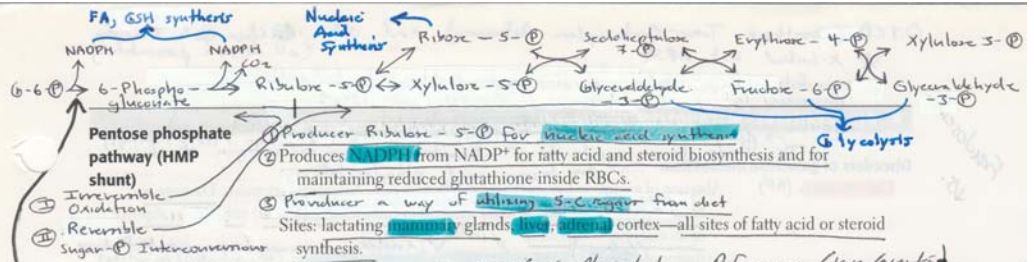 FA, GSH synthesis
Nucleic
Acid
Synthesis
NADPH NADPH
CO2
Ribose - 5 - P
Sedoheptulose
7 - P
Erythrose - 4 - P
Xylulose 5 - P
G-6-P
6-Phospho-
gluconate
Ribulose - 5 P
Xylulose - 5 - P
Glyceraldehyde
- 3 - P
Fructose - 6 - P
Glyceraldehyde
- 3 - P
Glycolysis
Pentose phosphate
pathway (HMP
shunt)
I Irreversible
Oxidation
II Reversible
Sugar - P Interconversions
① Produces Ribulose - 5 - P for nucleic acid synthesis
② Produces NADPH from NADP+ for fatty acid and steroid biosynthesis and for
maintaining reduced glutathione inside RBCs.
③ Provides a way of utilizing 5-C sugars from diet
Sites: lactating mammary glands, liver, adrenal cortex—all sites of fatty acid or steroid
synthesis.